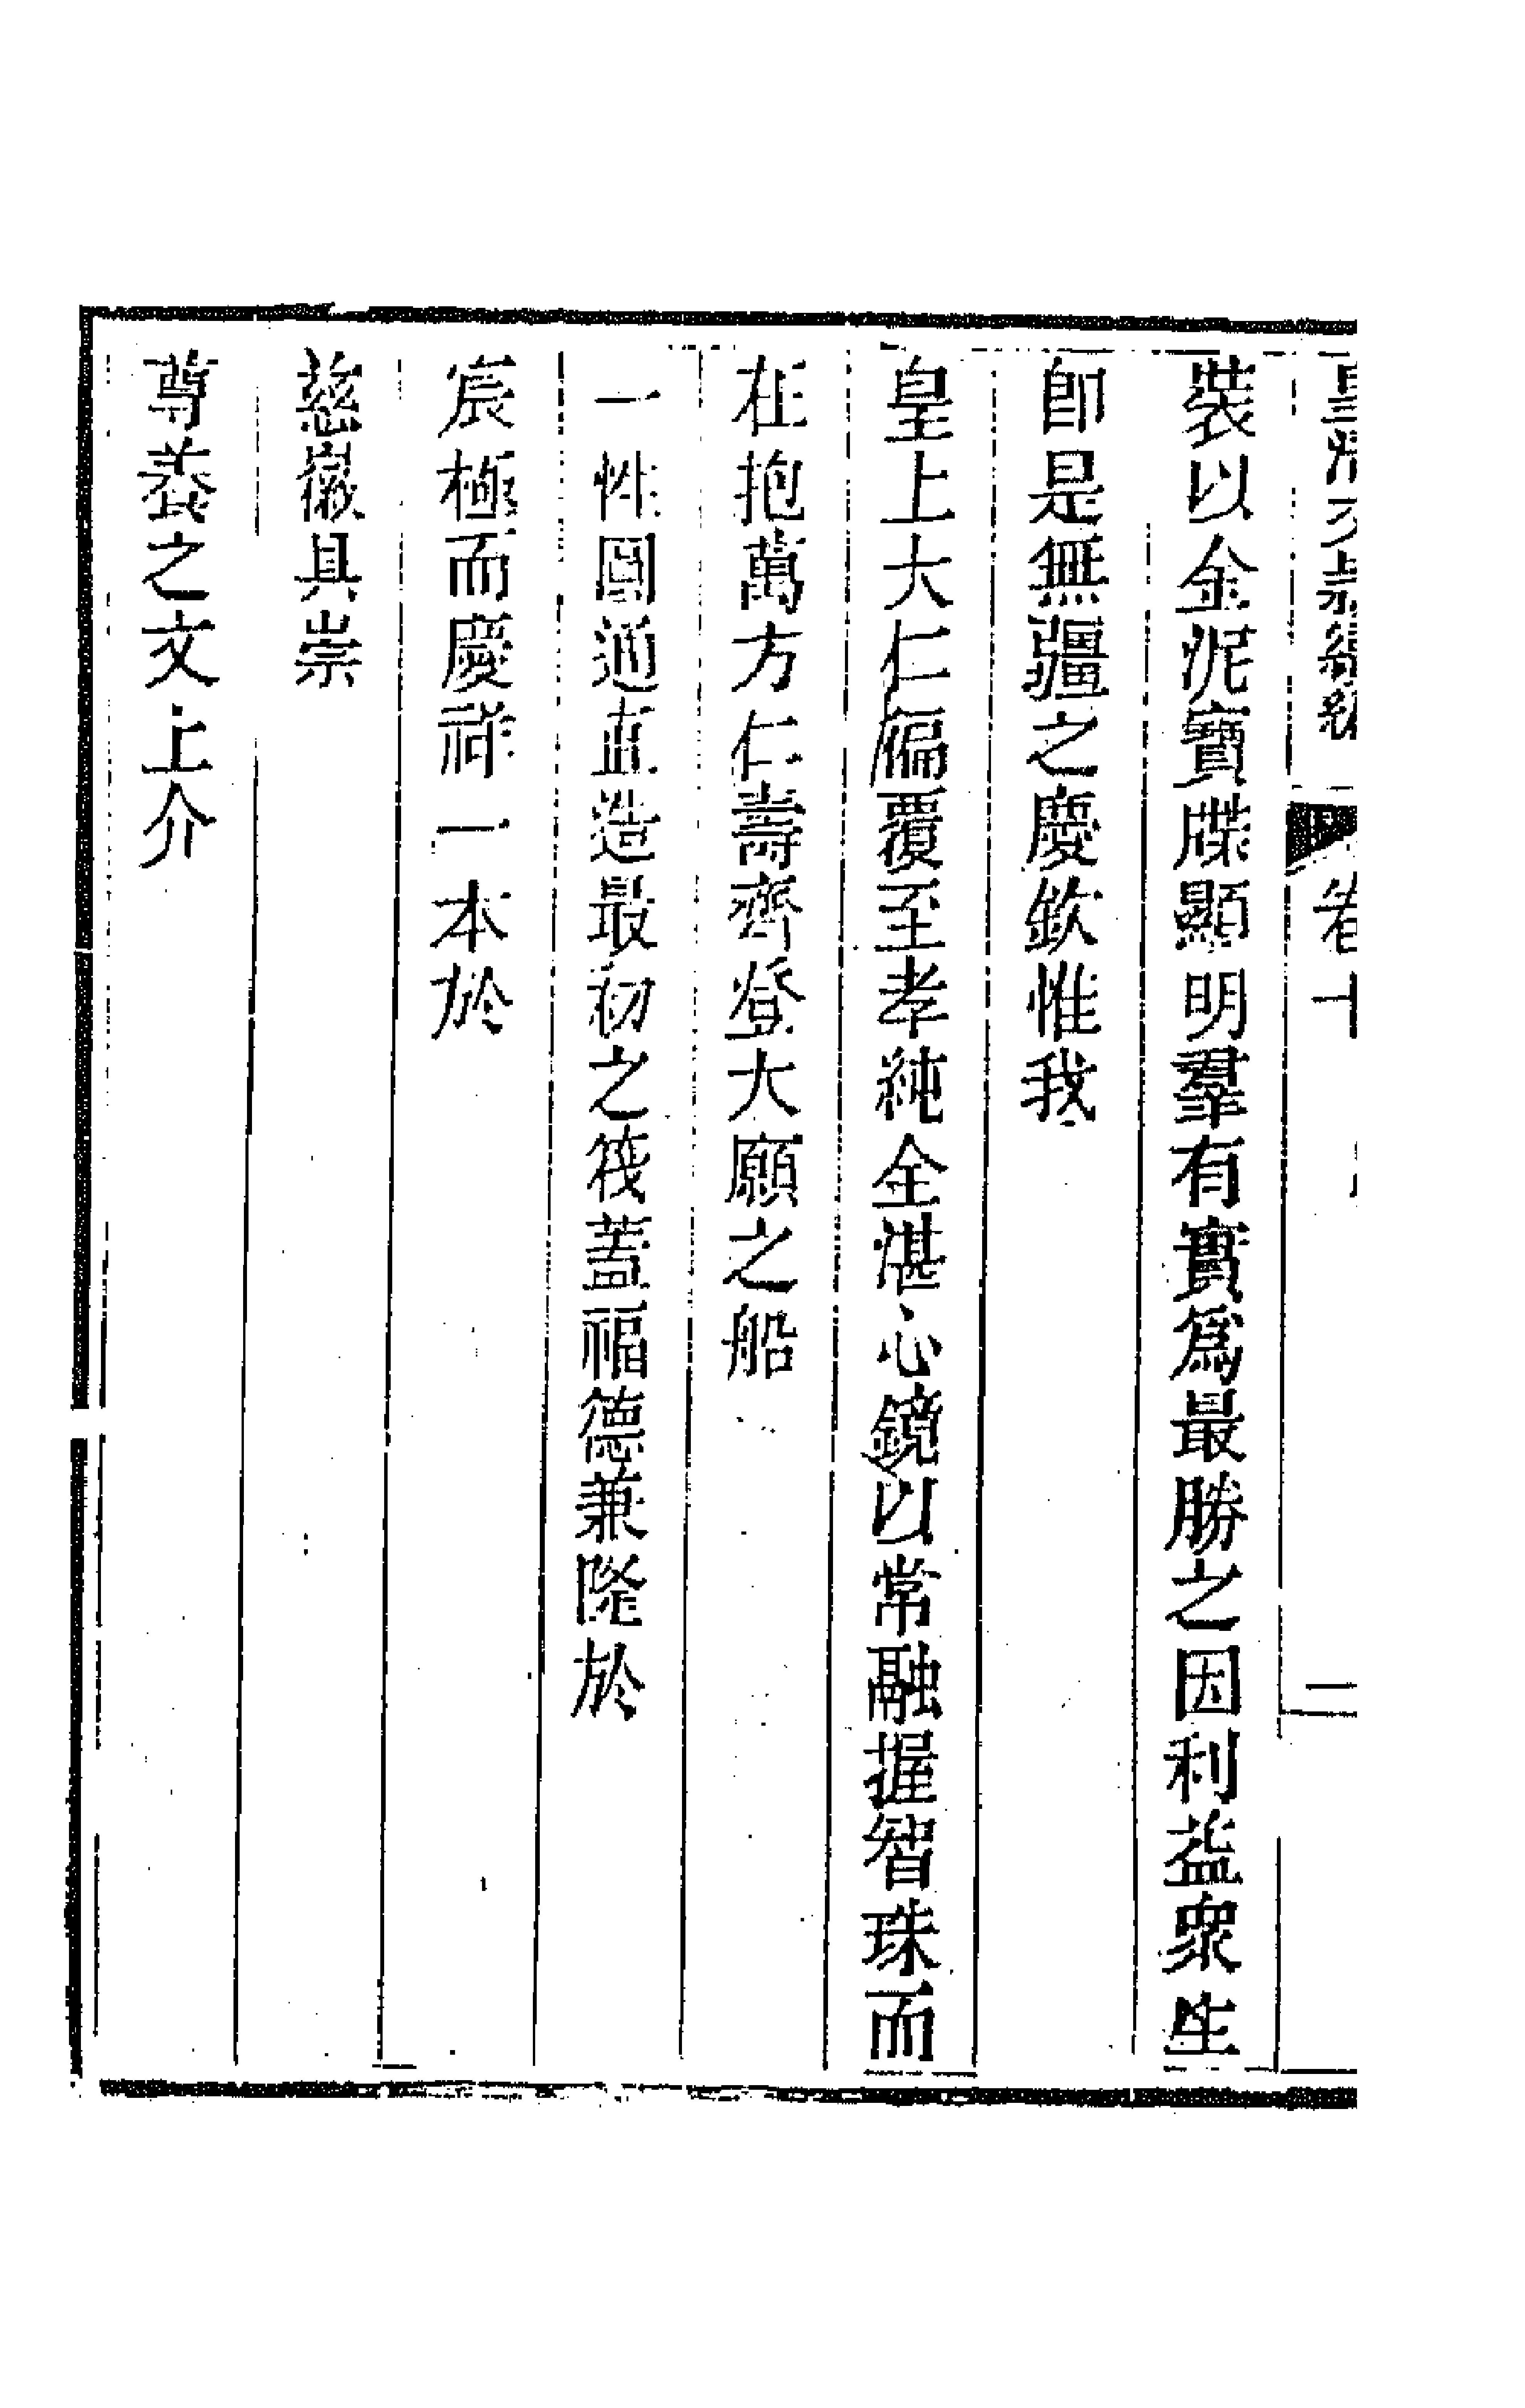 裝以金泥寶牒顯明羣有實爲最勝之因利益衆生
卽是無疆之慶欽惟我
皇上大仁偏覆至孝純全湛心鏡以常融握智珠而
在抱萬方仁壽齊登大願之船
一性圓通直造最初之筏蓋福德兼隆於
宸極而慶祥一本於
慈徽具崇
尊養之文上介